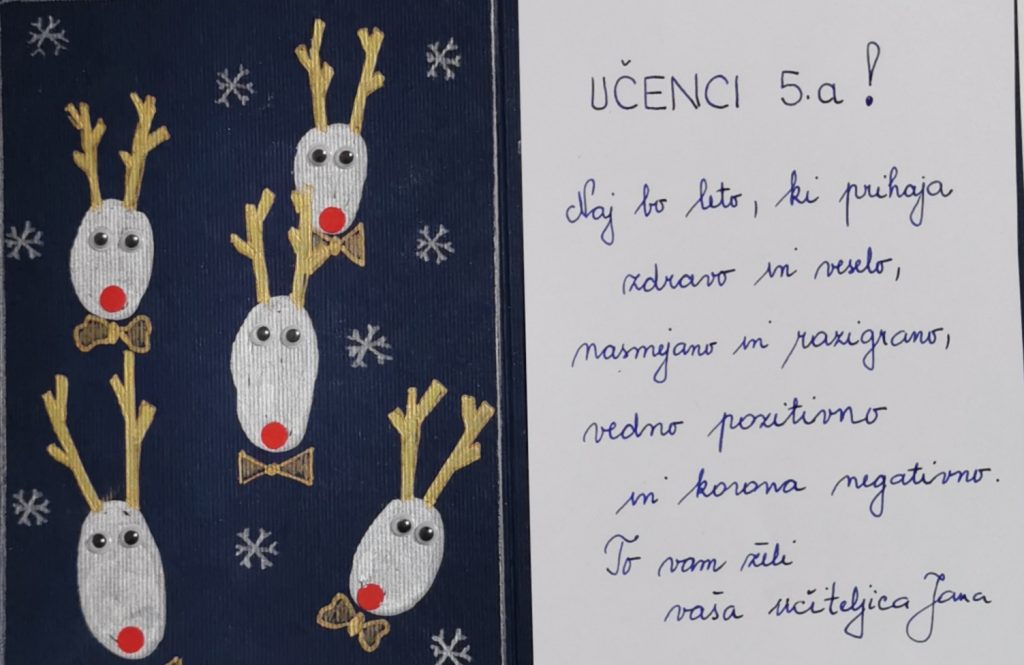 UČENCI 5.a!
Naj bo leto, ki prihaja
zdravo in veselo,
nasmejano in razigrano,
vedno pozitivno
in korona negativno.
To vam želi
vaša učiteljica Jana